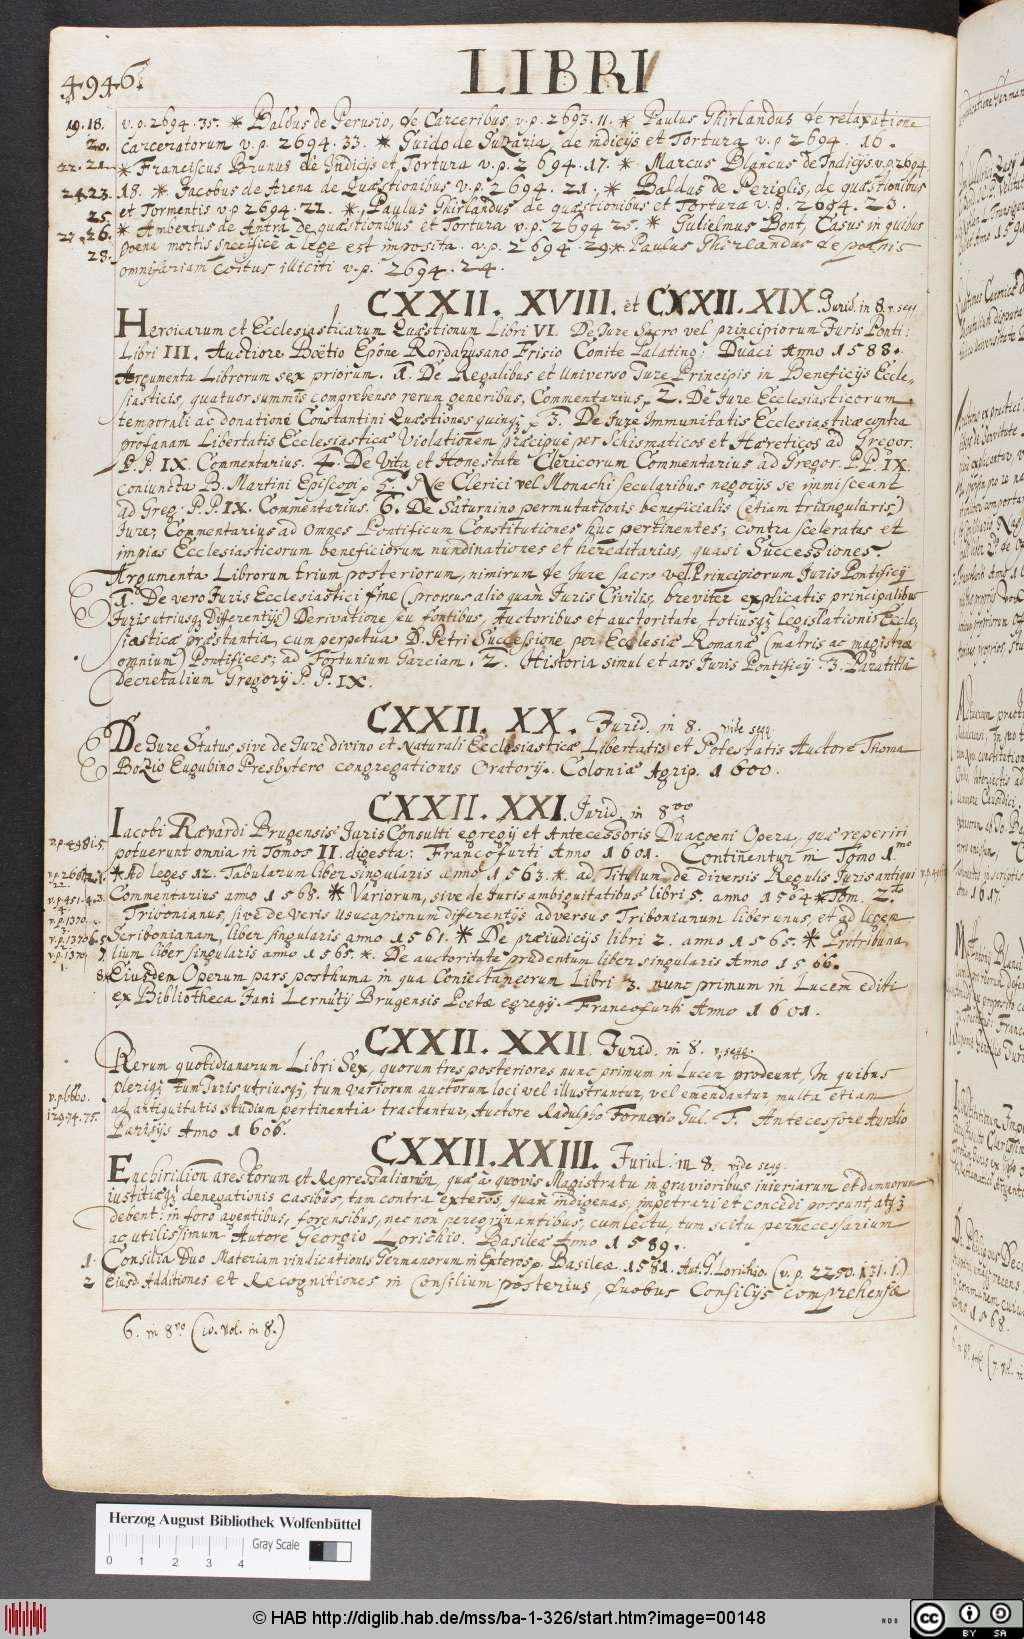 4946.
LIBRI
19. 18. v. p. 2694. 35. * Baldus de Perusio, de Carceribus v. p. 2693. 11. * Paulus Ghirlandus de relaxatione
20. carceratorum v. p. 2694. 33. * Guido de Suzaria, de indicijs et Tortura v. p 2694. 16.
22. 21. * Franciscus Brunus de Indicijs et Tortura v. p. 2694. 17. * Marcus Blancus de Indicijs. v. p. 2694
24. 23. 18. * Jacobus de Arena de Quæstionibus v. p. 2694. 21. * Baldus de Periglis, de quæstionibus
25. et Tormentis v. p 2694. 22. * Paulus Ghirlandus de quæstionibus et Tortura v. p. 2694. 23.
27. 26. * Ambertus de Antra de quæstionibus et Tortura v. p. 2694 25. * Gulielmus Bont, Casus in quibus
28. poena mortis specificè a lege est imposita. v. p. 2694. 29 * Paulus Ghirlandus de poenis
omnifariam coitus illiciti v. p. 2694. 24.
CXXII. XVIII. et CXXII. XIX. Jurid. in 8. v. seqq
Heroicarum et Ecclesiasticarum Quæstionum Libri VI. De Jure Sacro vel principiorum Juris Ponti:
Libri III. Auctiore Boëtio Epône Rordahusano Frisio Comite Palatino; Duaci Anno 1588.
Argumenta Librorum sex priorum. 1. De Regalibus et Universo Jure Principis in Beneficijs Eccle-
siasticis, quatuor summis comprehenso rerum generibus, Commentarius, 2. De Jure Ecclesiasticorum
temporali ac donatione Constantini Quæstiones quinq3, 3. De Jure Immunitatis Ecclesiasticæ contra
profanam Libertatis Ecclesiasticæ Violationem præcipuè per Schismaticos et Hæreticos ad Gregor.
P. P. IX. Commentarius. 4. De Vita et Honestate Clericorum Commentarius ad Gregor. P. P. IX.
coniuncta B. Martini Episcopi, 5. Ne Clerici vel Monachi secularibus negocijs se immisceant
ad Greg. P. P. IX. Commentarius. 6. De Saturnino permutationis beneficialis (etiam triangularis)
Jure; Commentarius ad omnes Pontificum Constitutiones huc pertinentes; contra sceleratas et
impias Ecclesiasticorum beneficiorum nundinationes et hereditarias, quasi Successiones.
Argumenta Librorum trium posteriorum, nimirum de Jure sacro vel Principiorum Juris Pontificij
1. De vero Juris Ecclesiastici fine (prorsus alio quam Juris Civilis, breviter explicatis principalibus
Juris utriusq3 Differentijs) Derivatione, seu fontibus, Auctoribus et auctoritate, totiusq3 legislationis Eccle,
siasticæ præstantia, cum perpetua D. Petri Successione, per Ecclesiæ Romanæ (matris ac magistræ
omnium) Pontifices; ad Fortunium Garciam. 2. Historia simul et ars Juris Pontificij. 3. Paratitla
Decretalium Gregorij P. P. IX.
CXXII. XX. Jurid. in 8. vide seqq
De Jure Status sive de Jure divino et Naturali Ecclesiasticæ Libertatis et Potestatis Auctore Thoma
Bozio Eugubino Presbytero congregationis Oratorij. Coloniæ Agrip. 1600.
CXXII. XXI. Jurid. in 8vo
Iacobi Rævardi Brugensis Juris Consulti egregij et Antecessoris Duacceni Opera, quæ reperiri
v. p. 4981. 5. potuerunt omnia in Tomos II. digesta: Francofurti Anno 1601. Continentur in Tomo 1.mo
* Ad leges 12. Tabularum liber singularis anno 1563. * ad Titulum de diversis Regulis Juris antiqui
Commentarius anno 1568. * Variorum, sive de Juris ambiguitatibus libri 5. anno 1564 * Tom. 2.
Tribonianus, sive de Veris usucapionum differentijs adversus Tribonianum liber unus, et ad legem
Scribonianam, liber singularis anno 1561. * De præiudicijs libri 2. anno 1565. * Protribuna,
lium liber singularis anno 1565. * De auctoritate prudentum liber singularis Anno 1566.
Eiusdem Operum pars posthuma in qua Coniectaneorum Libri 3. nunc primum in Lucem editi
ex Bibliotheca Jani Lernutij Brugensis Poetæ egregij. Francofurti Anno 1601.
CXXII. XXII. Jurid. in 8. v. seqq.
Rerum quotidianarum Libri Sex, quorum tres posteriores nunc primum in Lucem prodeunt, In quibus
v. p. 6660. pleriq3 tum Juris utriusq3, tum variorum auctorum loci vel illustrantur, vel emendantur multa etiam
ad antiquitatis studium pertinentia tractantur, Auctore Radulpho Fornerio Gul. F. Antecessore Aurelio
Parisijs Anno 1606.
CXXII. XXIII. Jurid. in 8. vide seqq.
Enchiridion arestorum et Repressaliarum, quæ à quovis Magistratu in gravioribus iniuriarum et damnorum
iustitiæq3 denegationis casibus, tam contra exteros, quam indigenas, impetrari et concedi possunt, atq3
debent: in foro agentibus, forensibus, nec non peregrinantibus, cum lectu, tum scitu pernecessarium
ac utilissimum Autore Georgio Lorichio. Basileæ Anno 1589.
1. Consilia Duo Materiam vindicationis Germanorum in Exteros p. Basileæ. 1581. Aut. G. Lorichio. (v. p. 2250. 131. 1.)
2 Eiusd. Additiones et Recognitiones in Consilium posterius, duobus Consilijs comprehensæ
6. in 8vo (10. vol. in 8.)
Herzog August Bibliothek Wolfenbüttel
Gray Scale
0 1 2 3 4
© HAB http://diglib.hab.de/mss/ba-1-326/start.htm?image=00148
cc BY SA